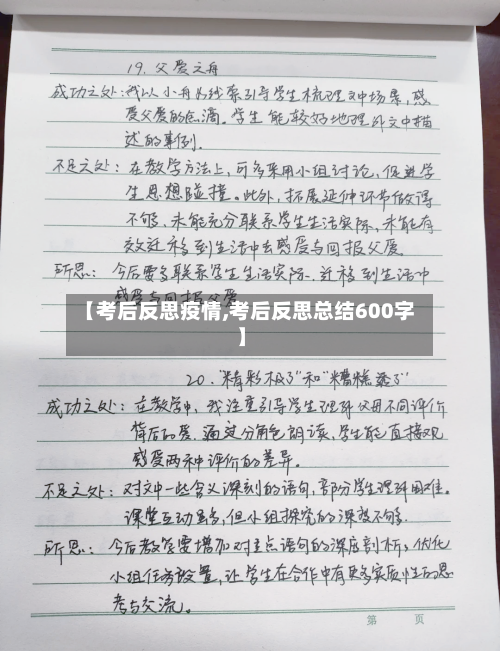 19. 父爱之舟
成功之处:我以小舟为线索引导学生梳理文中场景,感
受父爱的点滴。学生能较好地理解文中描
述的事例。
不足之处:在教学方法上,可多采用小组讨论,促进学
生思想碰撞。此外,拓展延伸环节做得
不够,未能充分联系学生生活实际,未能有
效迁移到生活中去感受与回报父爱。
所思:今后要多联系学生生活实际,迁移到生活中
感受与回报父爱
【考后反思疫情,考后反思总结600字
】
20. "精彩极了"和"糟糕透了"
成功之处:在教学中,我注重引导学生理解父母不同评价
背后的爱。通过分角色朗读,学生能直接观
感受两种评价的差异。
不足之处:对文中一些含义深刻的语句,部分学生理解困难。
课堂互动虽多,但小组探究的深度不够。
所思:今后教学要增加对重点语句的深度剖析,优化
小组任务设置,让学生在合作中有更多实质性的思
考与交流。
第 页